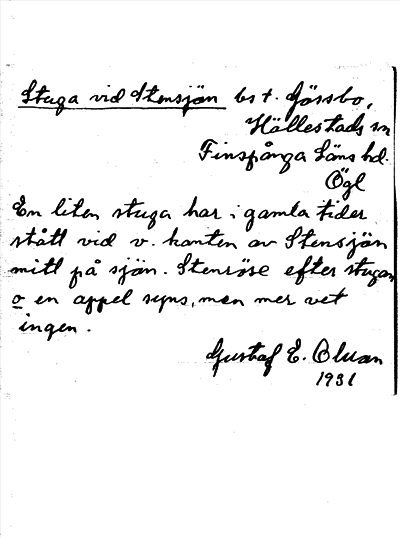 Stuga vid Stensjön bs t. Gössbo,
Hällestads sn
Finspånga läns hd.
Ögl
En liten stuga har i gamla tider
stått vid v. kanten av Stensjön
mitt på sjön. Stenröse efter stugan
o en appel syns, men mer vet
ingen.
Gustaf E.
1931